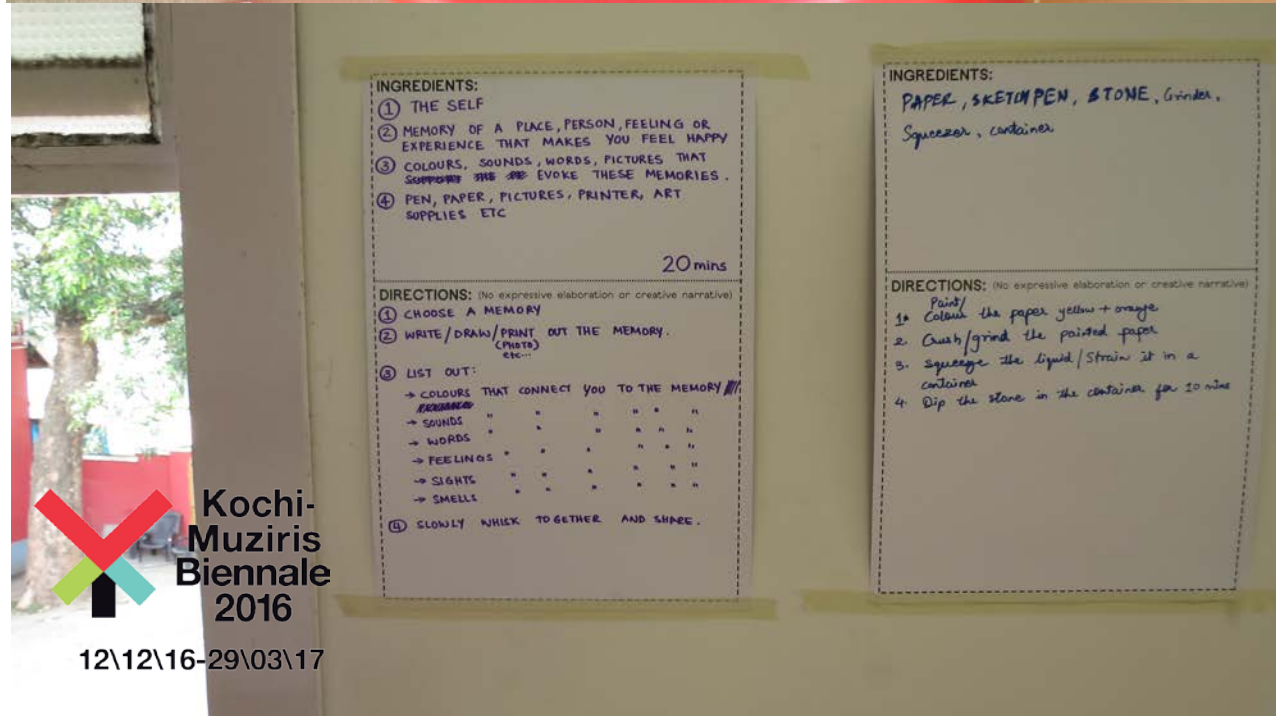 INGREDIENTS:
① THE SELF
② MEMORY OF A PLACE, PERSON, FEELING OR
EXPERIENCE THAT MAKES YOU FEEL HAPPY
③ COLOURS, SOUNDS, WORDS, PICTURES THAT
SUPPORT THE EVOKE THESE MEMORIES.
④ PEN, PAPER, PICTURES, PRINTER, ART
SUPPLIES ETC
20 mins
DIRECTIONS: (No expressive elaboration or creative narrative)
① CHOOSE A MEMORY
② WRITE/DRAW/PRINT OUT THE MEMORY.
(PHOTO)
etc...
③ LIST OUT:
→ COLOURS THAT CONNECT YOU TO THE MEMORY
→ SOUNDS " " " " " "
→ WORDS " " " " " "
→ FEELINGS " " " " " "
→ SIGHTS " " " " " "
→ SMELLS " " " " " "
④ SLOWLY WHISK TOGETHER AND SHARE.
INGREDIENTS:
PAPER, SKETCHPEN, STONE, Grinder,
Squeezer, container
DIRECTIONS: (No expressive elaboration or creative narrative)
Paint/
1. Colour the paper yellow + orange
2. Crush/grind the painted paper
3. Squeeze the liquid/Strain it in a
container
4. Dip the stone in the container for 10 mins
Kochi-
Muziris
Biennale
2016
12\12\16-29\03\17